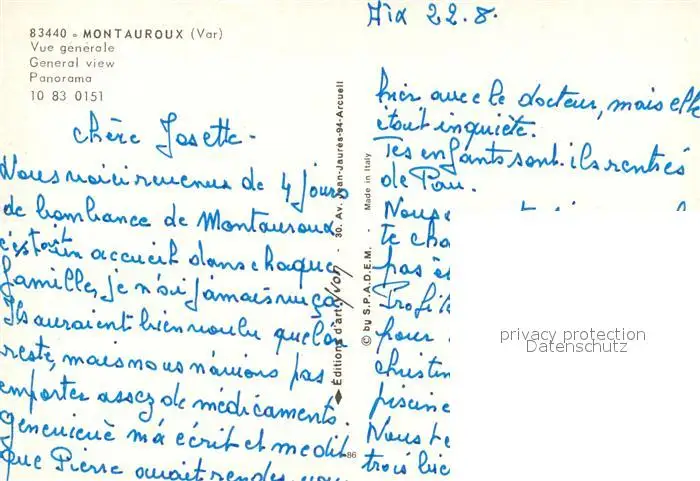 83440 - MONTAUROUX (Var)
Vue générale
General view
Panorama
10 83 0151
Aix 22.8.
chère Josette -
Nous voici revenus de 4 jours
de bombance de Montauroux
c'était un accueil dans chaque
famille, je n'ai jamais vu ça
Ils auraient bien voulu qu'on
reste, mais nous n'avions pas
emporter assez de médicaments.
Geneviève m'a écrit et me dit
que Pierre avait rendez vous
hier avec le docteur, mais elle
était inquiète.
Tes enfants sont-ils rentrés
de Pau.
Nous
te
pas
pour
piscine
Nous te
trois
Editions d'art Yvon - 30, Av. Jean-Jaurès-94-Arcueil
© by S.P.A.D.E.M. - Made in Italy
86
privacy protection
Datenschutz